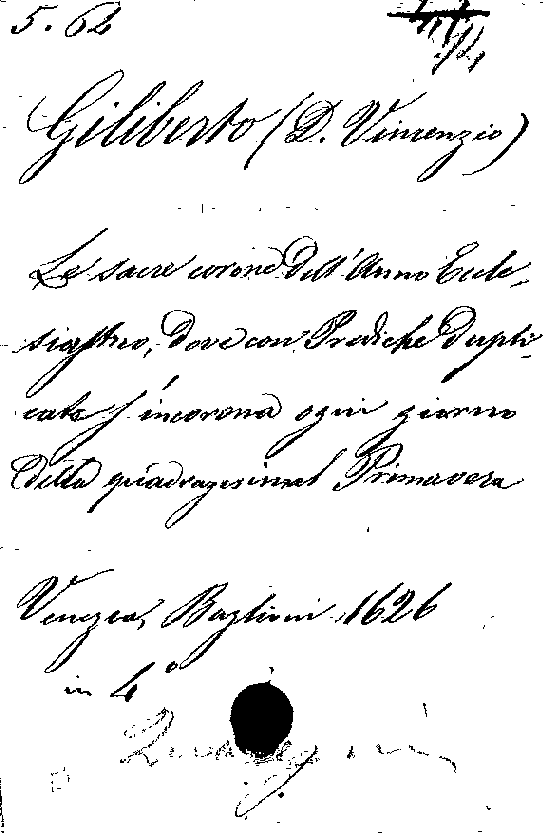 5. 62
Giliberto (D. Vincenzio)
Le sacre corone dell'Anno Eccle-
siastico, dove con Prediche dupli-
cate s'incorona ogni giorno
della quadragesimal Primavera
Venezia, Baglioni 1626
in 4°